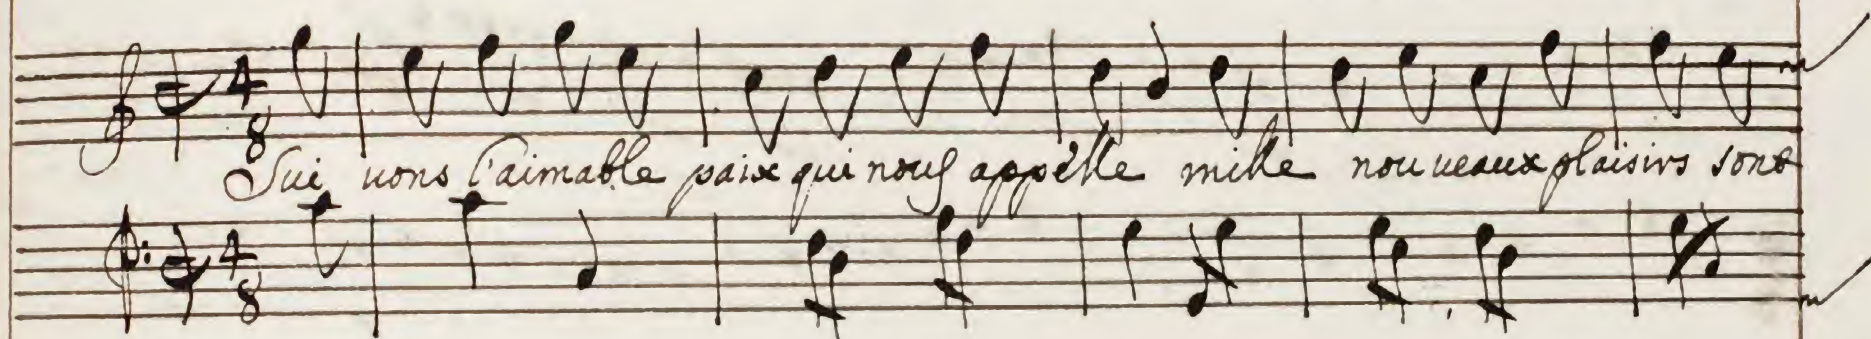 4
8
Sui uons l'aimable paix qui nous appelle mille nouueaux plaisirs sont
4
8